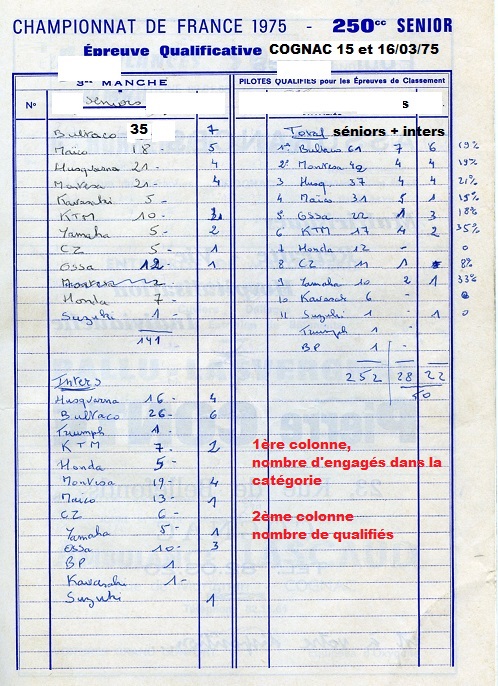 CHAMPIONNAT DE FRANCE 1975 - 250cc SENIOR
Épreuve Qualificative COGNAC 15 et 16/03/75
MANCHE
PILOTES QUALIFIÉS pour les Épreuves de Classement
No
Séniors
s
Bultaco 35 7
Maïco 18 - 5
Husqvarna 21 - 4
Montesa 21 - 4
Kawasaki 5 -
KTM 10 -
Yamaha 5 - 2
CZ 5 - 1
Ossa 12 - 1
Honda 7 -
Suzuki 1 -
141
Inters
Husqvarna 16 - 4
Bultaco 26 - 6
Triumph 1 -
KTM 7 -
Honda 5 -
Montesa 19 - 4
Maïco 13 - 1
CZ 6 -
Yamaha 5 - 1
Ossa 10 - 3
BP 1
Kawasaki 1 -
Suzuki 1
Total séniors + inters
1er Bultaco 61 7 6 19%
2e Montesa 42 4 4 19%
3 Husq 37 4 4 21%
4 Maïco 31 5 1 19%
5 Ossa 22 1 3 18%
6 KTM 17 4 2 35%
7 Honda 12 - 0
8 CZ 11 1 8%
9 Yamaha 10 2 1 33%
10 Kawasaki 6 -
11 Suzuki 1 - 1 0
Triumph 1 -
BP 1
252 28 22
50
1ère colonne,
nombre d'engagés dans la
catégorie
2ème colonne
nombre de qualifiés